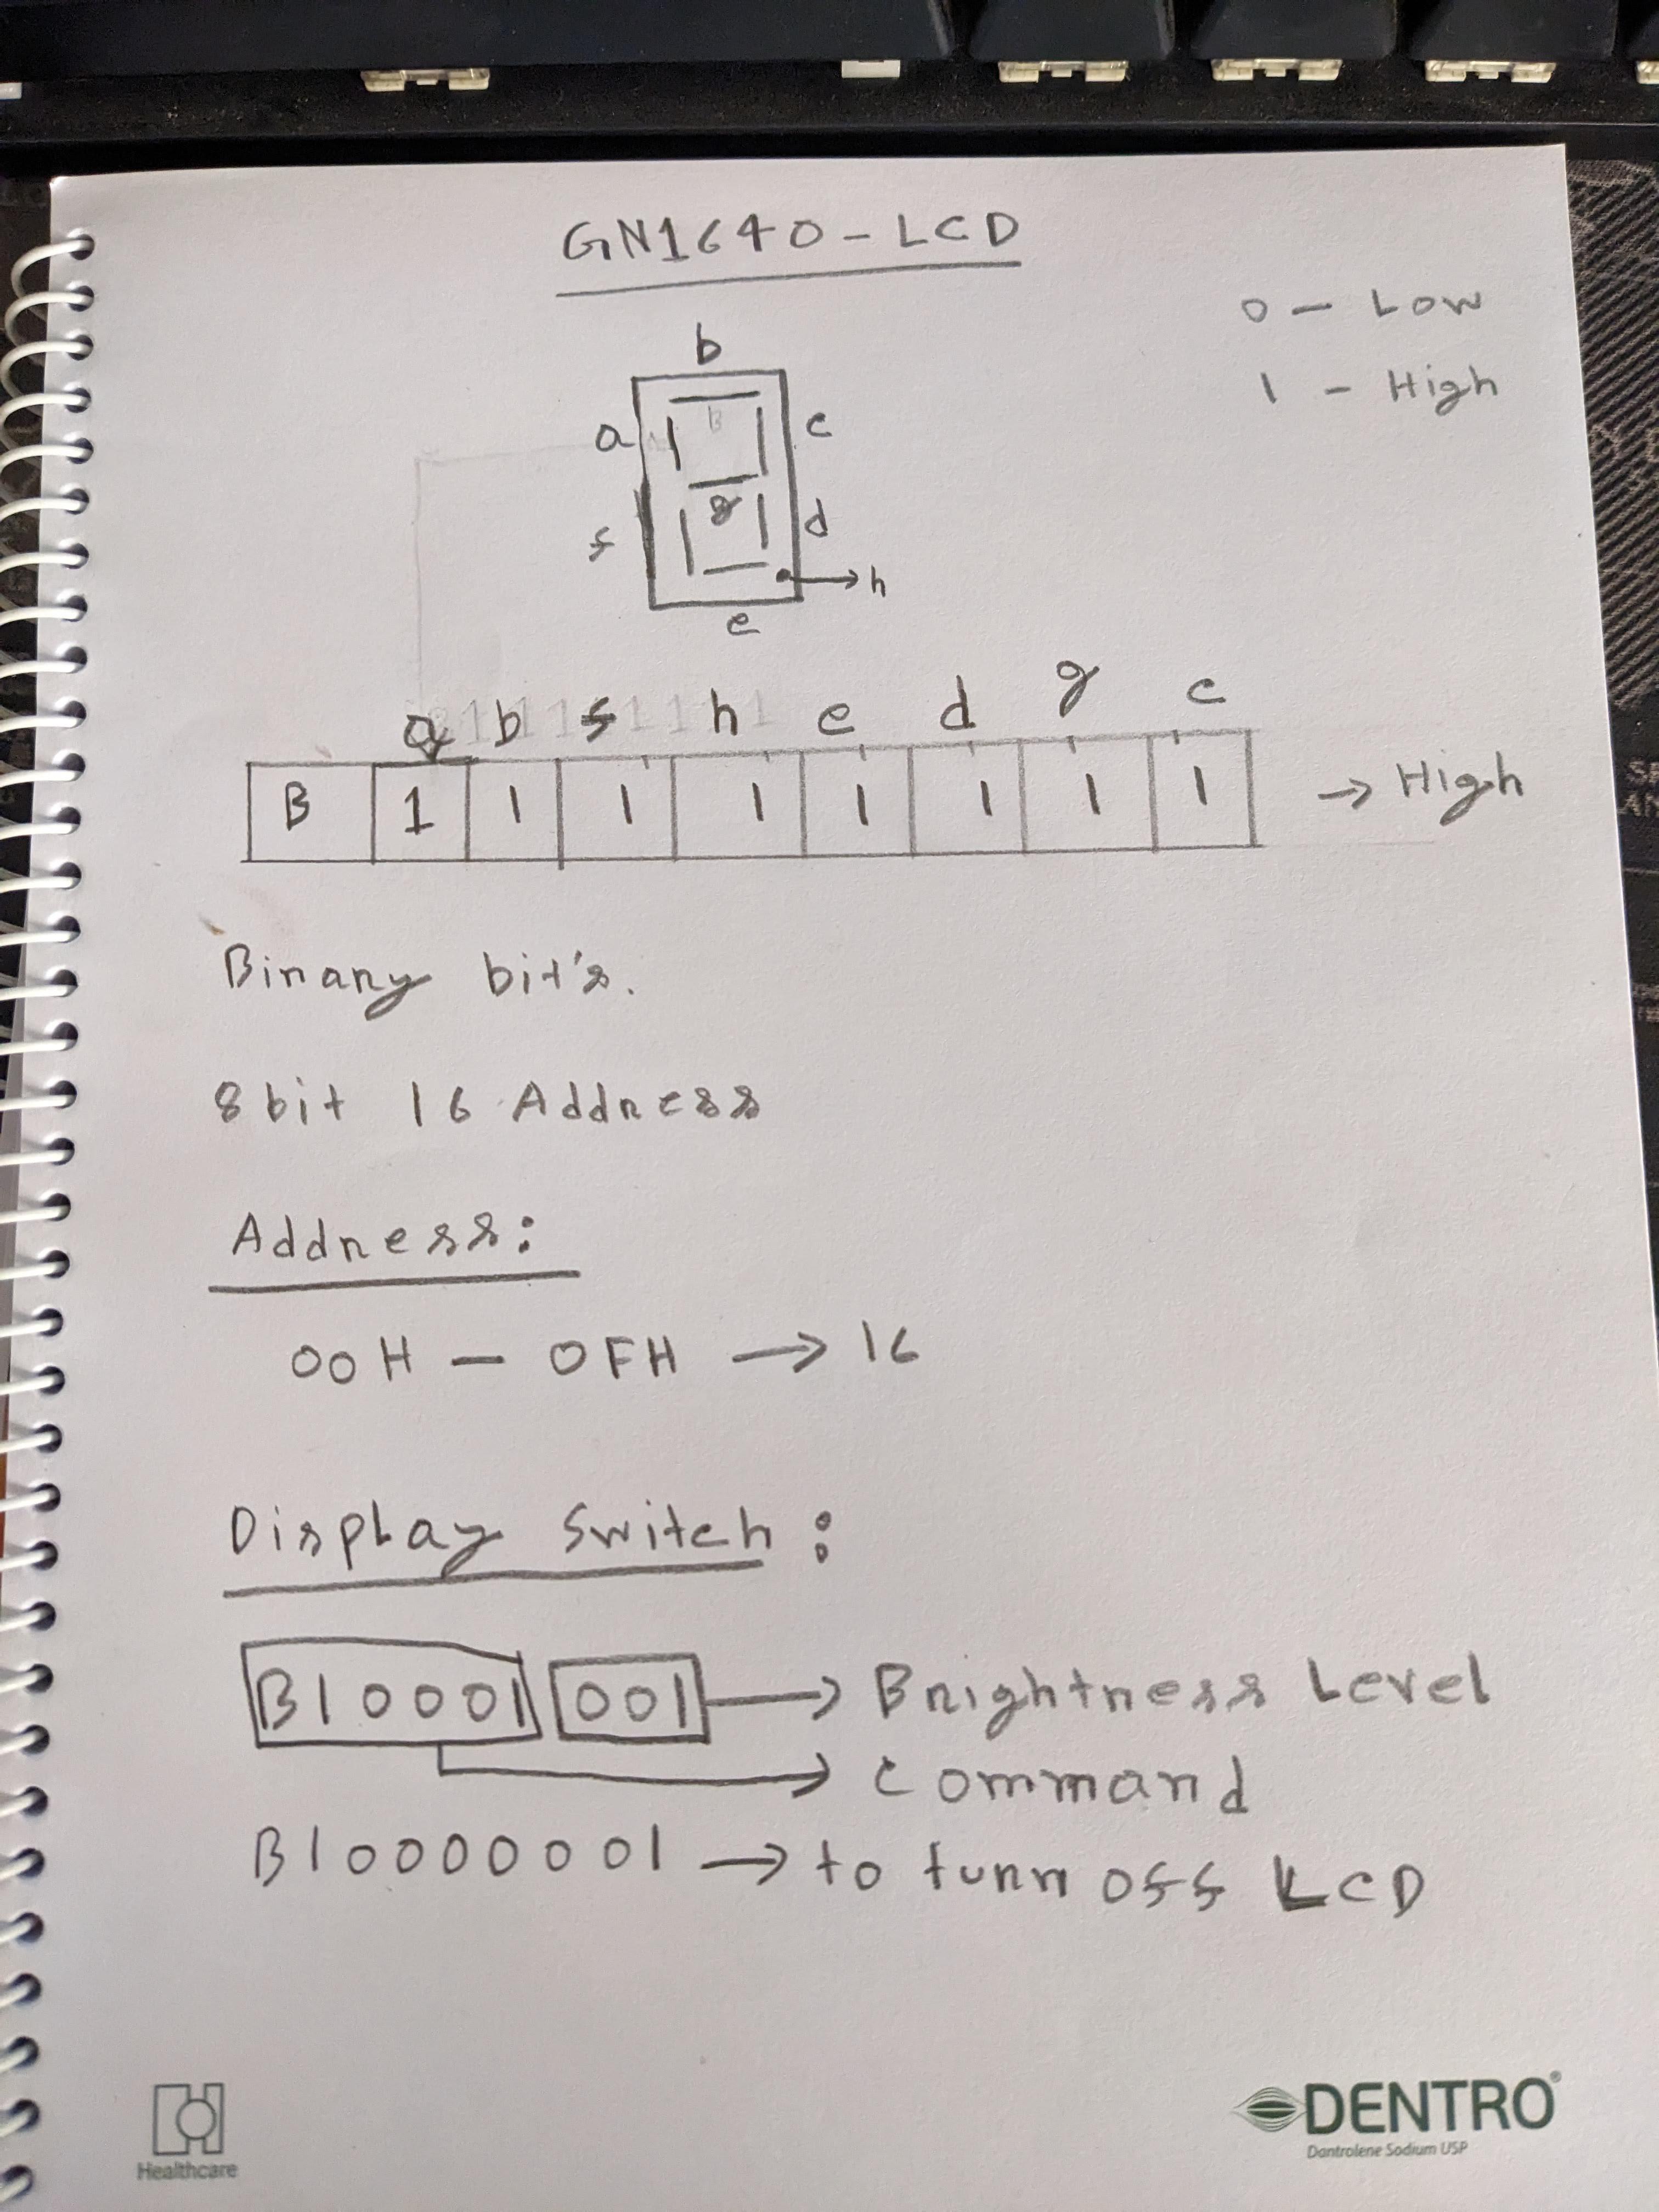 GN1640-LCD
0 - Low
1 - High
b
a
c
g
f
d
h
e
a b f h e d g c
B 1 1 1 1 1 1 1 1 → High
Binary bit's.
8bit 16 Address
Address:
00H - 0FH → 16
Display Switch :
B10001 001 → Brightness Level
→ Command
B10000001 → to turn off LCD
Healthcare
DENTRO®
Dantrolene Sodium USP